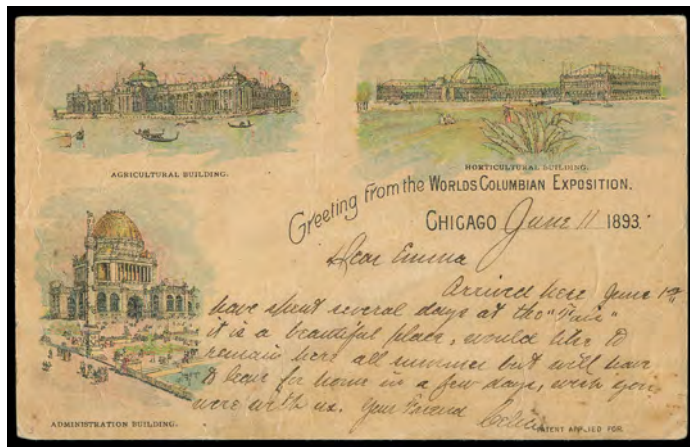 AGRICULTURAL BUILDING.
HORTICULTURAL BUILDING.
Greeting from the WORLDS COLUMBIAN EXPOSITION.
CHICAGO June 11 1893.
Dear Emma
Arrived here June 1st
have spent several days at the "Fair"
it is a beautiful place, would like to
remain here all summer but will have
to leave for home in a few days, wish you
were with us. Your Friend
ADMINISTRATION BUILDING.
PATENT APPLIED FOR.